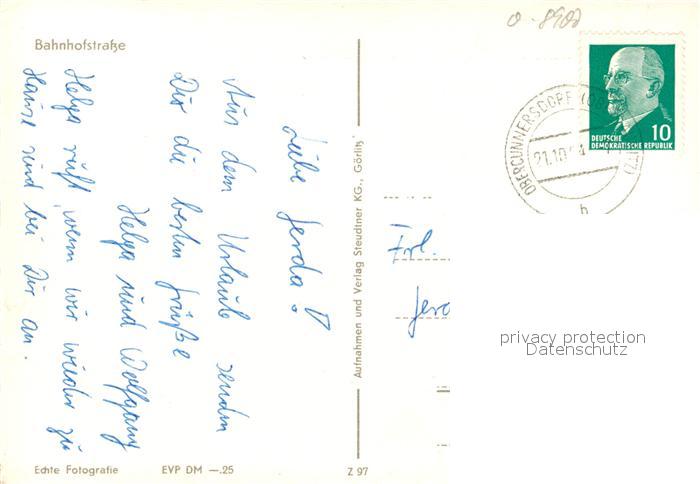 o-8900
Bahnhofstraße
DEUTSCHE
DEMOKRATISCHE REPUBLIK
10
OBERCUNNERSDORF
21.10.
b
Liebe Gerda!
Aus dem Urlaub senden
Dir die besten Grüße
Helga und Wolfgang
Helga ruft, wenn wir wieder zu
Hause sind bei Dir an.
Aufnahmen und Verlag Steudtner KG., Görlitz
Frl.
privacy protection
Datenschutz
Echte Fotografie
EVP DM —.25
Z 97